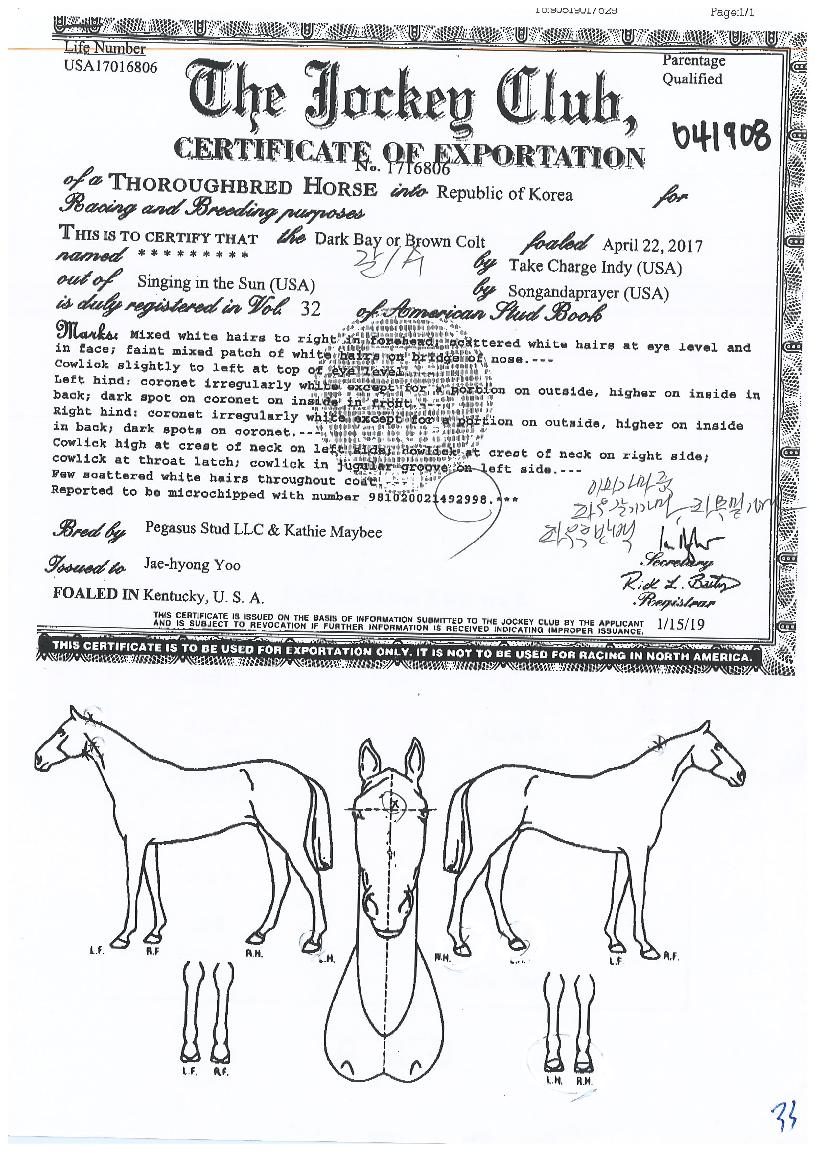 Page:1/1
Life Number
USA17016806
Parentage
Qualified
The Jockey Club,
041908
CERTIFICATE OF EXPORTATION
No. 1716806
of a THOROUGHBRED HORSE into Republic of Korea for
Racing and Breeding purposes
THIS IS TO CERTIFY THAT the Dark Bay or Brown Colt foaled April 22, 2017
named * * * * * * * * * by Take Charge Indy (USA)
out of Singing in the Sun (USA) by Songandaprayer (USA)
is duly registered in Vol. 32 of American Stud Book
Marks: Mixed white hairs to right in forehead; scattered white hairs at eye level and
in face; faint mixed patch of white hairs on bridge of nose.---
Cowlick slightly to left at top of eye level.---
Left hind: coronet irregularly white except for a portion on outside, higher on inside in
back; dark spot on coronet on inside in front.---
Right hind: coronet irregularly white except for a portion on outside, higher on inside
in back; dark spots on coronet.---
Cowlick high at crest of neck on left side; cowlick at crest of neck on right side;
cowlick at throat latch; cowlick in jugular groove on left side.---
Few scattered white hairs throughout coat.---
Reported to be microchipped with number 981020021492998.***
Bred by Pegasus Stud LLC & Kathie Maybee
Secretary
Issued to Jae-hyong Yoo
Registrar
FOALED IN Kentucky, U. S. A.
THIS CERTIFICATE IS ISSUED ON THE BASIS OF INFORMATION SUBMITTED TO THE JOCKEY CLUB BY THE APPLICANT
AND IS SUBJECT TO REVOCATION IF FURTHER INFORMATION IS RECEIVED INDICATING IMPROPER ISSUANCE.
1/15/19
THIS CERTIFICATE IS TO BE USED FOR EXPORTATION ONLY. IT IS NOT TO BE USED FOR RACING IN NORTH AMERICA.
L.F. R.F. R.H. L.H. R.H. L.F. R.F.
L.F. R.F. L.H. R.H.
33